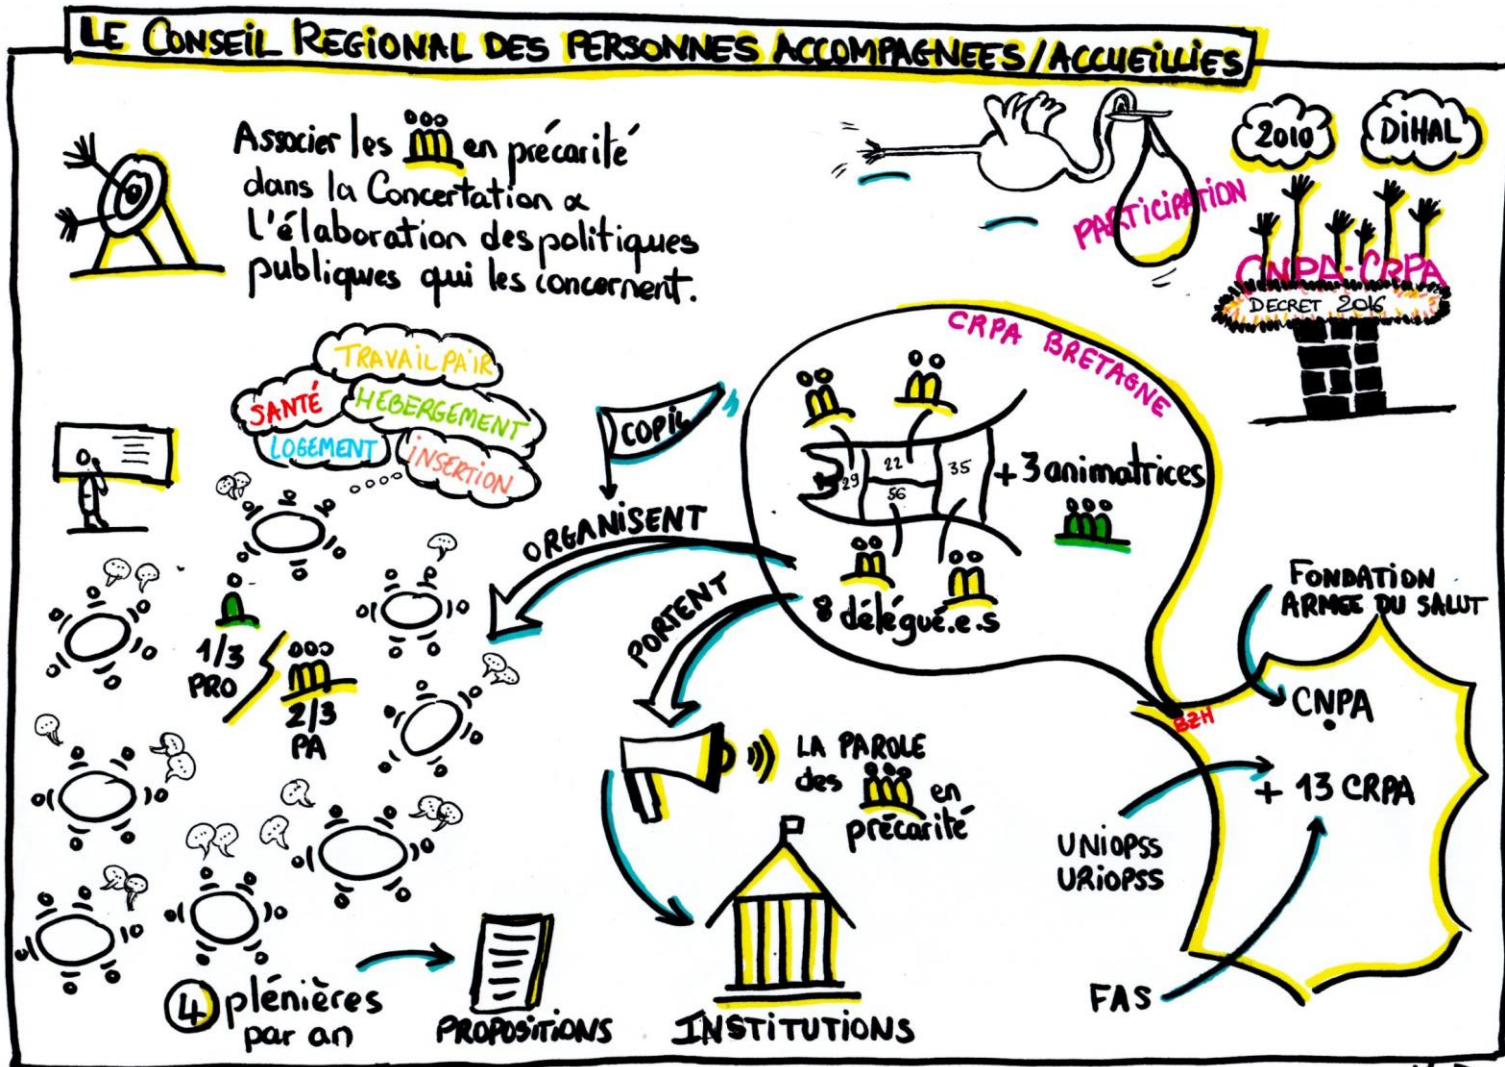 LE CONSEIL REGIONAL DES PERSONNES ACCOMPAGNEES/ACCUEILLIES
Associer les en précarité
dans la Concertation &
l'élaboration des politiques
publiques qui les concernent.
PARTICIPATION
2010
DIHAL
CNPA-CRPA
DECRET 2016
TRAVAIL PAIR
SANTÉ
HEBERGEMENT
LOGEMENT
INSERTION
COPIL
ORGANISENT
PORTENT
CRPA BRETAGNE
29
22
56
35
+ 3 animatrices
8 délégué.e.s
1/3
PRO
2/3
PA
LA PAROLE
des en
précarité
4 plénières
par an
PROPOSITIONS
INSTITUTIONS
FONDATION
ARMEE DU SALUT
BZH
CNPA
+ 13 CRPA
UNIOPSS
URIOPSS
FAS